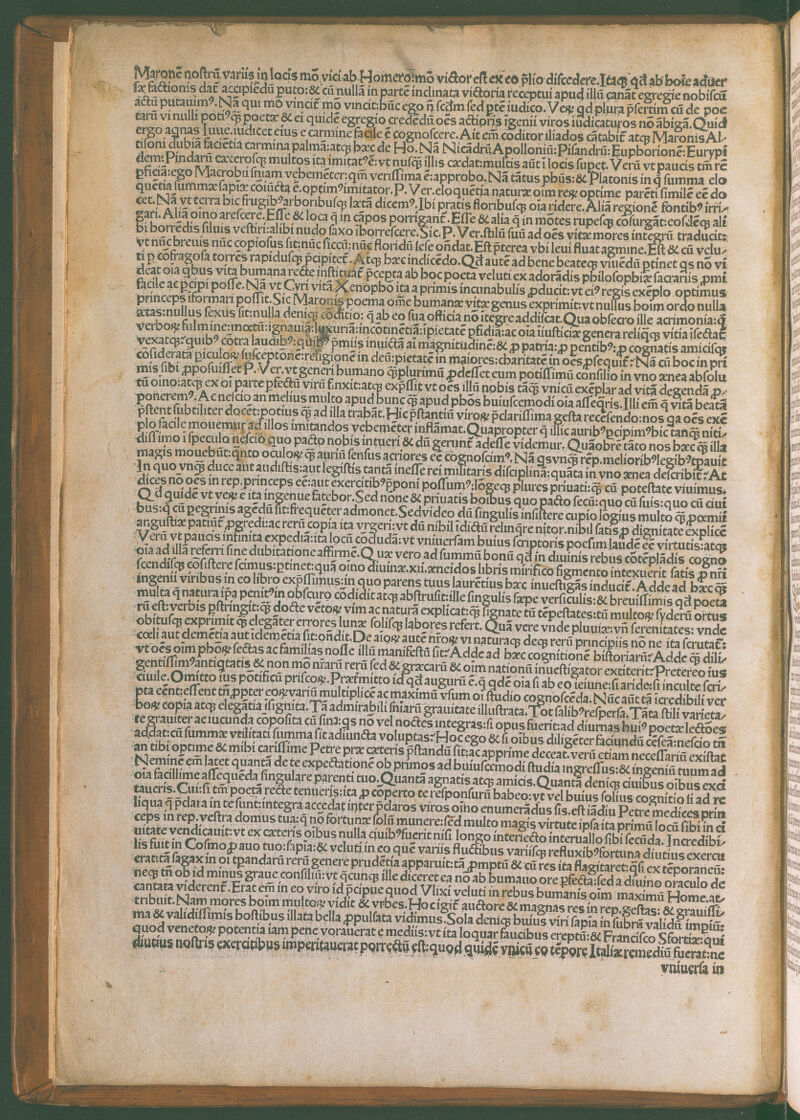 Maronē noſtrū variis in locis mō vici ab Homero: mō victor eſt ex eo p̄lio diſcedere. Itaq; qd ab hoīe aduer
ſæ factionis dat̄ accipiēdū puto: & cū nullā in partē inclinata victoria receptui apud illū canāt egregie nobiſcū
actū putauim⁹. Nā qui mō vincit̄ mō vincit: huic ego n̄ ſcđm ſed pte iudico. Veꝝ qd plura p̄ſertim cū de poe
tarū vi nulli poti⁹ꝗ̄ poetæ & ei quidē egregio credēdū oēs actiōis īgenii viros iudicaturos nō ābigā. Quid
ergo agnas Iuue. iudicet eius e carmine facile ē cognoſcere. Ait em̄ cōditor iliados cātabit̄ atq; Maronis Al
tiſoni dubiā faciētia carmina palmā: atq; hæc de Ho. Nā Nicādrū Apolloniū: Piſandrū: Euphorionē: Eurypi
dem: Pindarū cæteroſq; multos ita imitat⁹ ē: vt nuſꝗ̄ illis cædat: multis aūt ī locis ſupet. Verū vt paucis tm̄ rē
pficiā: ego Macrobii ſniam vehemēter: qm̄ veriſſima ē: approbo. Nā tātus phūs: & Platonis in q̄ ſumma elo
quētia ſummæ ſapīæ coiūcta ē. optim⁹ imitator. P. Ver. eloquētia naturæ oim reꝝ optime parēti ſimilē eē do
cet. Nā vt terra hic frugib⁹ arboribuſq; lætā dicem⁹. Ibi pratis floribuſq; oia ridere. Aliā regionē fontib⁹ irri-
gari. Aliā oino areſcere. Eſſe & loca q̄ in cāpos porrigant̄. Eſſe & alia q̄ in mōtes rupeſq; coſurgāt: eoſdēq; ali
bi horrēdis ſiluis veſtiri: alibi nudo ſaxo īhorreſcere. Sic. P. Ver. ſtilū ſuū ad oēs vitæ mores integrū traducit:
vt nūc breuis nūc copioſus ſit: nūc ſiccū: nūc floridū ſeſe oñdat. Eſt p̄terea vbi leui fluat agmine. Eſt & cū velu-
ti p cōfragoſa torrēs rapiduſq; p̄cipitet̄. Atq; hæc indicēdo. Qd aūtē ad bene beateq; viuēdū ptinet qs nō vi
deat oia qbus vita humana recte inſtituat̄ p̄cepta ab hoc poeta veluti ex adorādis philoſophiæ ſacrariis ꝓmi
facile ac p̄cipi poſſe. Nā vt Cyri vitā Xenopho ita a primis incunabulis ꝓducit: vt ei⁹ regis exēplo optimus
princeps iformari poſſit. Sic Maronis poema ome humanæ vitæ genus exprimit: vt nullus hoim ordo nulla
ætas: nullus ſexus ſit: nulla deniq; cōditio: q̄ ab eo ſua officia nō itegre addiſcat. Qua obſecro ille acrimonia: q̄
verboꝝ fulmine: mœtū: ignauiā: luxuriā: incōtinētiā: īpietatē pfidiā: ac oia iiuſticiæ genera reliq̄q; vitia iſectat̄
vexatq;: quib⁹ cōtra laudib⁹: quib⁹ p̄miis inuictā ai magnitudinē: & ꝓ patria: ꝓ pentib⁹: ꝓ cognatis amiciſq;
cōſiderata piculoꝝ ſuſceptionē: religionē in deū: pietatē in maiores: charitatē in oēs ꝓſequit̄: Nā cū hoc in pri
mis ſibi ꝓpoſuiſſet P. Ver. vt generi humano ꝗ̄plurimū ꝓdeſſet eum potiſſimū conſilio in vno ænea abſolu
tū oino: atq; ex oi parte pfectū virū finxit: atq; exp̄ſſit vt oēs illū nobis tāꝗ̄ vnicū exēplar ad vitā degendā ꝓ-
ponerem⁹. Ac neſcio an melius multo apud hunc ꝗ̄ apud phōs huiuſcemodi oia aſſeq̄ris. Illi em̄ q̄ vitā beatā
p̄ſtent ſubtiliter docēt: potius ꝗ̄ ad illa trahāt. Hic p̄ſtantiū viroꝝ p̄clariſſima geſta recēſendo: nos qa oēs exē
plo facile mouemur ad illos imitandos vehemēter inflāmat. Quapropter q̄ illic aurib⁹ pcipim⁹ hic tanꝗ̄ niti-
diſſimo i ſpeculo neſcio quo pacto nobis intueri & dū gerunt̄ adeſſe videmur. Quāobrē tāto nos hæc ꝗ̄ illa
magis mouebūt: ꝗ̄nto oculoꝝ ꝗ̄ auriū ſenſus acriores eē cognoſcim⁹. Nā qs vnꝗ̄ rēp. meliorib⁹ legib⁹ tpauit
In quo vnꝗ̄ duce aūt audiſtis: aut legiſtis tantā ineſſe rei militaris diſciplinā: quāta in vno ænea deſcribit̄: At
dices nō oēs in rep. princeps eē: aut exercitib⁹ p̄poni poſſum⁹: lōgeq; plures priuati: ꝗ̄ cū poteſtate viuimus.
Qd quidē vt veꝝ e ita ingenue fatebor. Sed none & priuatis hoibus quo pacto ſecū: quo cū ſuis: quo cū ciui
bus: q̄ cū pegrinis agēdū ſit: frequēter admonet. Sed video dū ſingulis inſiſtere cupio lōgius multo ꝗ̄ ꝓœmii
anguſtiæ patiūt̄ ꝓgredi: ac rerū copia ita vrgeri: vt dū nihil īdictū relinq̄re nitor. nihil ſatis ꝓ dignitate explicē
Verū vt paucis infinita expediā: ita locū cōcludā: vt vniuerſam huius ſcriptoris poeſim laudē eē virtutis: atq;
oia ad illā referri ſine dubitatione affirmē. Quæ vero ad ſummū bonū qd in diuinis rebus cōtēplādis cogno
ſcendiſq; cōſiſtere ſcimus: ptinet: quā oino diuinæ. xii. æneidos libris mirifico figmento intexuerit ſatis ꝓ nri
ingenii viribus in eo libro exp̄ſſimus: in quo parens tuus laurētius hæc inueſtigās inducit̄. Adde ad hæc ꝗ̄
multa q̄ natura ip̄a penit⁹ in obſcuro cōdidit atq; abſtruſit: ille ſingulis ſæpe verſiculis: & breuiſſimis qd poeta
rū eſt: verbis pſtringit: ꝗ̄ docte vētoꝝ vim ac naturā explicat: ꝗ̄ ſignate tū tēpeſtates: tū multoꝝ ſyderū ortus
obituſq; exprimit ꝗ̄ elegāter errores lunæ ſoliſq; labores refert. Quā vere vnde pluuiæ: vn̄ ſerenitates: vnde
cœli aut demētia aut idemētia ſit: oñdit. De aioꝝ aūtē nr̄oꝝ vi natura q; deq; rerū principiis nō ne ita ſcrutat̄:
vt oēs oim phōꝝ ſectas ac familias noſſe illū manifeſtū ſit: Adde ad hæc cognitionē hiſtoriarū: Adde ꝗ̄ dili-
gentiſſim⁹ antiqtatis & non mō nr̄arū rerū ſed & græcarū & oim nationū inueſtigator extiterit: Pretereo ius
ciuile. Omitto ius pōtificū priſcoꝝ. Præfmitto id qd augurū ē. q̄ qdē oia ſi ab eo ieiune: ſi aride: ſi inculte ſcri-
pta cēnt: eſſent tn̄ ꝓpter eoꝝ variū multiplicē ac maximū vſum oi ſtudio cognoſcēda. Nūc aūt tā icredibili ver
boꝝ copia atq; elegātia iſignita. Tā admirabili ſniarū grauitate illuſtrata. Tot ſalib⁹ reſperſa. Tāta ſtili varieta-
te grauiter ac iucunda cōpoſita cū ſint: qs nō vel noctes integras: ſi opus fuerit: ad diurnas hui⁹ poetæ lectōes
addat: cū ſummæ vtilitati ſumma ſit adiuncta voluptas: Hoc ego & ſi oibus diligēter faciundū cēſeā: neſcio tn̄
an tibi optime & mihi cariſſime Petre præ cæteris p̄ſtandū ſit: ac apprime deceat. verū etiam neceſſariū exiſtat
Neminē em̄ latet quantā de te expectationē ob primos ad huiuſcemodi ſtudia ingreſſus: & ingeniū tuum ad
oia facillime aſſequēda ſingulare parenti tuo. Quantā agnatis atq; amicis. Quanta deniq; ciuibus oibus exci
taueris. Cui: ſi tm̄ poetā recte tenueris: ita ꝓ cōperto te reſponſurū habeo: vt vel huius ſolius cognitio ſi ad re
liqua q̄ p̄clara in te ſunt: integra accedat inter p̄claros viros oino enumerādus ſis. eſt iādiu Petre medices prin
ceps in rep. veſtra domus tua: q̄ nō fortunæ ſolū munere: ſed multo magis virtute ipſa ita primū locū ſibi in ci
uitate vendicauit: vt ex cæteris oibus nulla ciuib⁹ fuerit niſi longo interiecto interuallo ſibi ſecūda. Incredibi-
lis fuit in Coſmo ꝓauo tuo: ſapīa: & veluti in eo quē variis fluctibus variiſq; refluxib⁹ fortuna diutius exercu
erat: tā ſagax in oi tpandarū rerū genere prudētia apparuit: tā ꝓmptū & cū res ita flagitaret: qſi ex tēporaneū:
neq; tn̄ ob id minus graue conſiliū: vt q̄cunq; ille diceret ea nō ab humano ore ꝓfecta: ſed a diuino oraculo de
cantata viderent̄. Erat em̄ in eo viro id p̄cipue quod Vlixi veluti in rebus humanis oim maximū Home. at-
tribuit. Nam mores hoim multoꝝ vidit & vrbes. Hoc igit̄ auctore & magnas res in rep. geſtas: & grauiſſi-
ma & validiſſimis hoſtibus illata bella ꝓpulſata vidimus. Sola deniq; huius viri ſapīa inſubrū validū impiū:
quod venetoꝝ potentia iam pene vorauerat e mediis: vt ita loquar faucibus ereptū: & Franciſco Sfortiæ: qui
diutius noſtris exercitibus imperitauerat porrectū eſt: quod quidē vnicū eo tēpore Italiæ remediū fuerat: ne
vniuerſa in